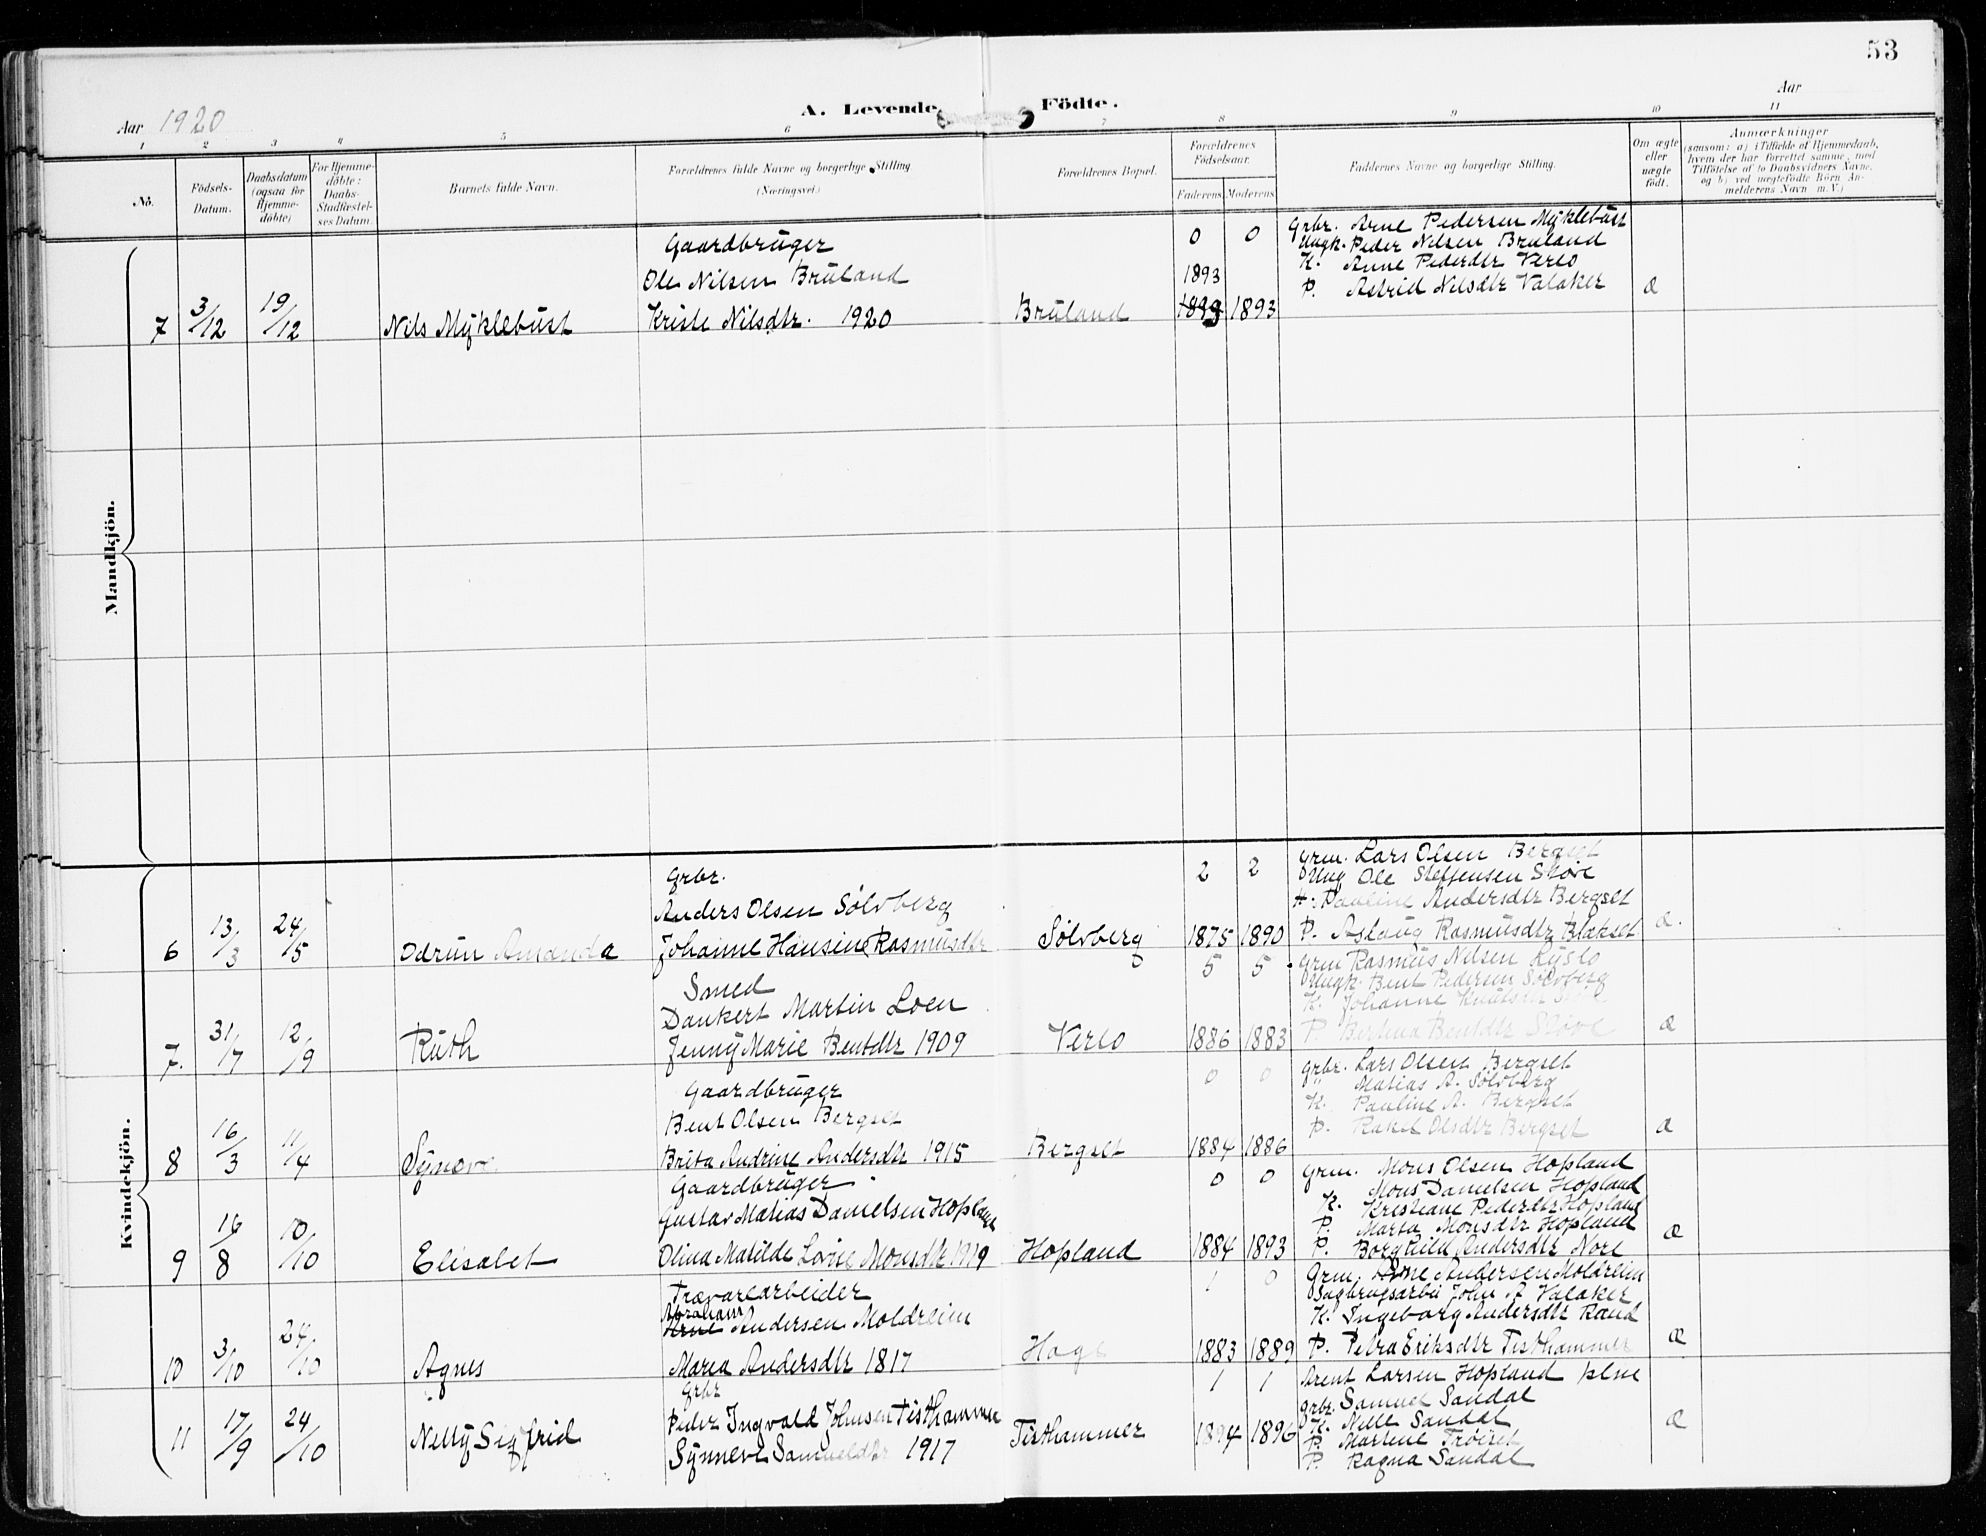 53
Aar 1920
A. Levende Födte.
Aar
1 2 3 4 5 6 7 8 9 10 11
No.
Födsels-Datum.
Daabsdatum (ogsaa for Hjemmedöbte)
For Hjemmedöbte: Daabs-Stadfæstelses Datum.
Barnets fulde Navn.
Forældrenes fulde Navne og borgerlige Stilling (Næringsvei.)
Forældrenes Bopæl.
Forældrenes Födselsaar.
Faderens. Moderens.
Faddernes Navne og borgerlige Stilling.
Om ægte eller uægte födt.
Anmærkninger
(saasom: a) i Tilfælde af Hjemmedaab,
hvem der har forrettet samme, med
Tilföielse af to Daabsvidners Navne,
og b) ved uægtefödte Börn An-
melderens Navn m. V.)
Mandkjön.
7 3/12 19/12 Nils Myklebust
Gaardbruger
Ole Nilsen Bruland
Kriste Nilsdtr. 1920
Bruland
0 0
1893
1893 1893
Grbr. Arne Pedersen Myklebust
Ungk. Peder Nilsen Bruland
K. Anne Pedersdtr Verlo
P. Astrid Nilsdtr Valaker
Æ
Kvindekjön.
6 13/3 24/5 Odrun Amanda
Grbr.
Anders Olsen Sölvberg
Johanne Hansine Rasmusdtr
Sölvberg
2 2
1875 1890
Grm. Lars Olsen Bergset
Ung Ole Steffensen Støve
K. Pauline Andersdtr Bergset
P. Aslaug Rasmusdtr Blakset
Æ.
7. 31/7 12/9 Ruth
Smed
Dankert Martin Loen
Jenny Marie Bentdtr 1909
Verlo
5 5
1886 1883
Grm Rasmus Nilsen Ryslo
Ungk. Bent Pedersen Sölvberg
K. Johanne
P. Bertina Bentdtr Støve
Æ
8 16/3 11/4 Synøve
Gaardbruger
Bent Olsen Bergset
Brita Andrine Andersdtr 1915
Bergset
0 0
1884 1886
Grbr. Lars Olsen Bergset
" Matias A. Sölvberg
K. Pauline A. Bergset
P. Rakel Olsdtr Bergset
Æ
9 16/8 10/10 Elisabet
Gaardbruger
Gustav Matias Danielsen Hopland
Olina Matilde Lovise Monsdtr 1919
Hopland
0 0
1884 1893
Grm. Mons Olsen Hopland
Mons Danielsen Hopland
K. Kristiane Pedersdtr Hopland
P. Marta Monsdtr Hopland
P. Borghild Andersdtr Nore
Æ
10 3/10 24/10 Agnes
Trævarearbeider
Abraham
Arne Andersen Moldreim
Maria Andersdtr 1817
Hage
1 0
1883 1889
Grm. Arne Andersen Moldreim
Sagbrugsarbei John A Valaker
K. Ingeborg Andersdtr Rand
P. Petra Eriksdtr Tisthammer
Æ
11 17/9 24/10 Nelly Sigfrid
Grbr
Peder Ingvald Johnsen Tisthammer
Synneve Samueldtr 1917
Tisthammer
1 1
1894 1896
Arent Larsen Hopland
Grbr. Samuel Sandal
K. Nille Sandal
P. Martine Trøiset
P. Ragna Sandal
Æ